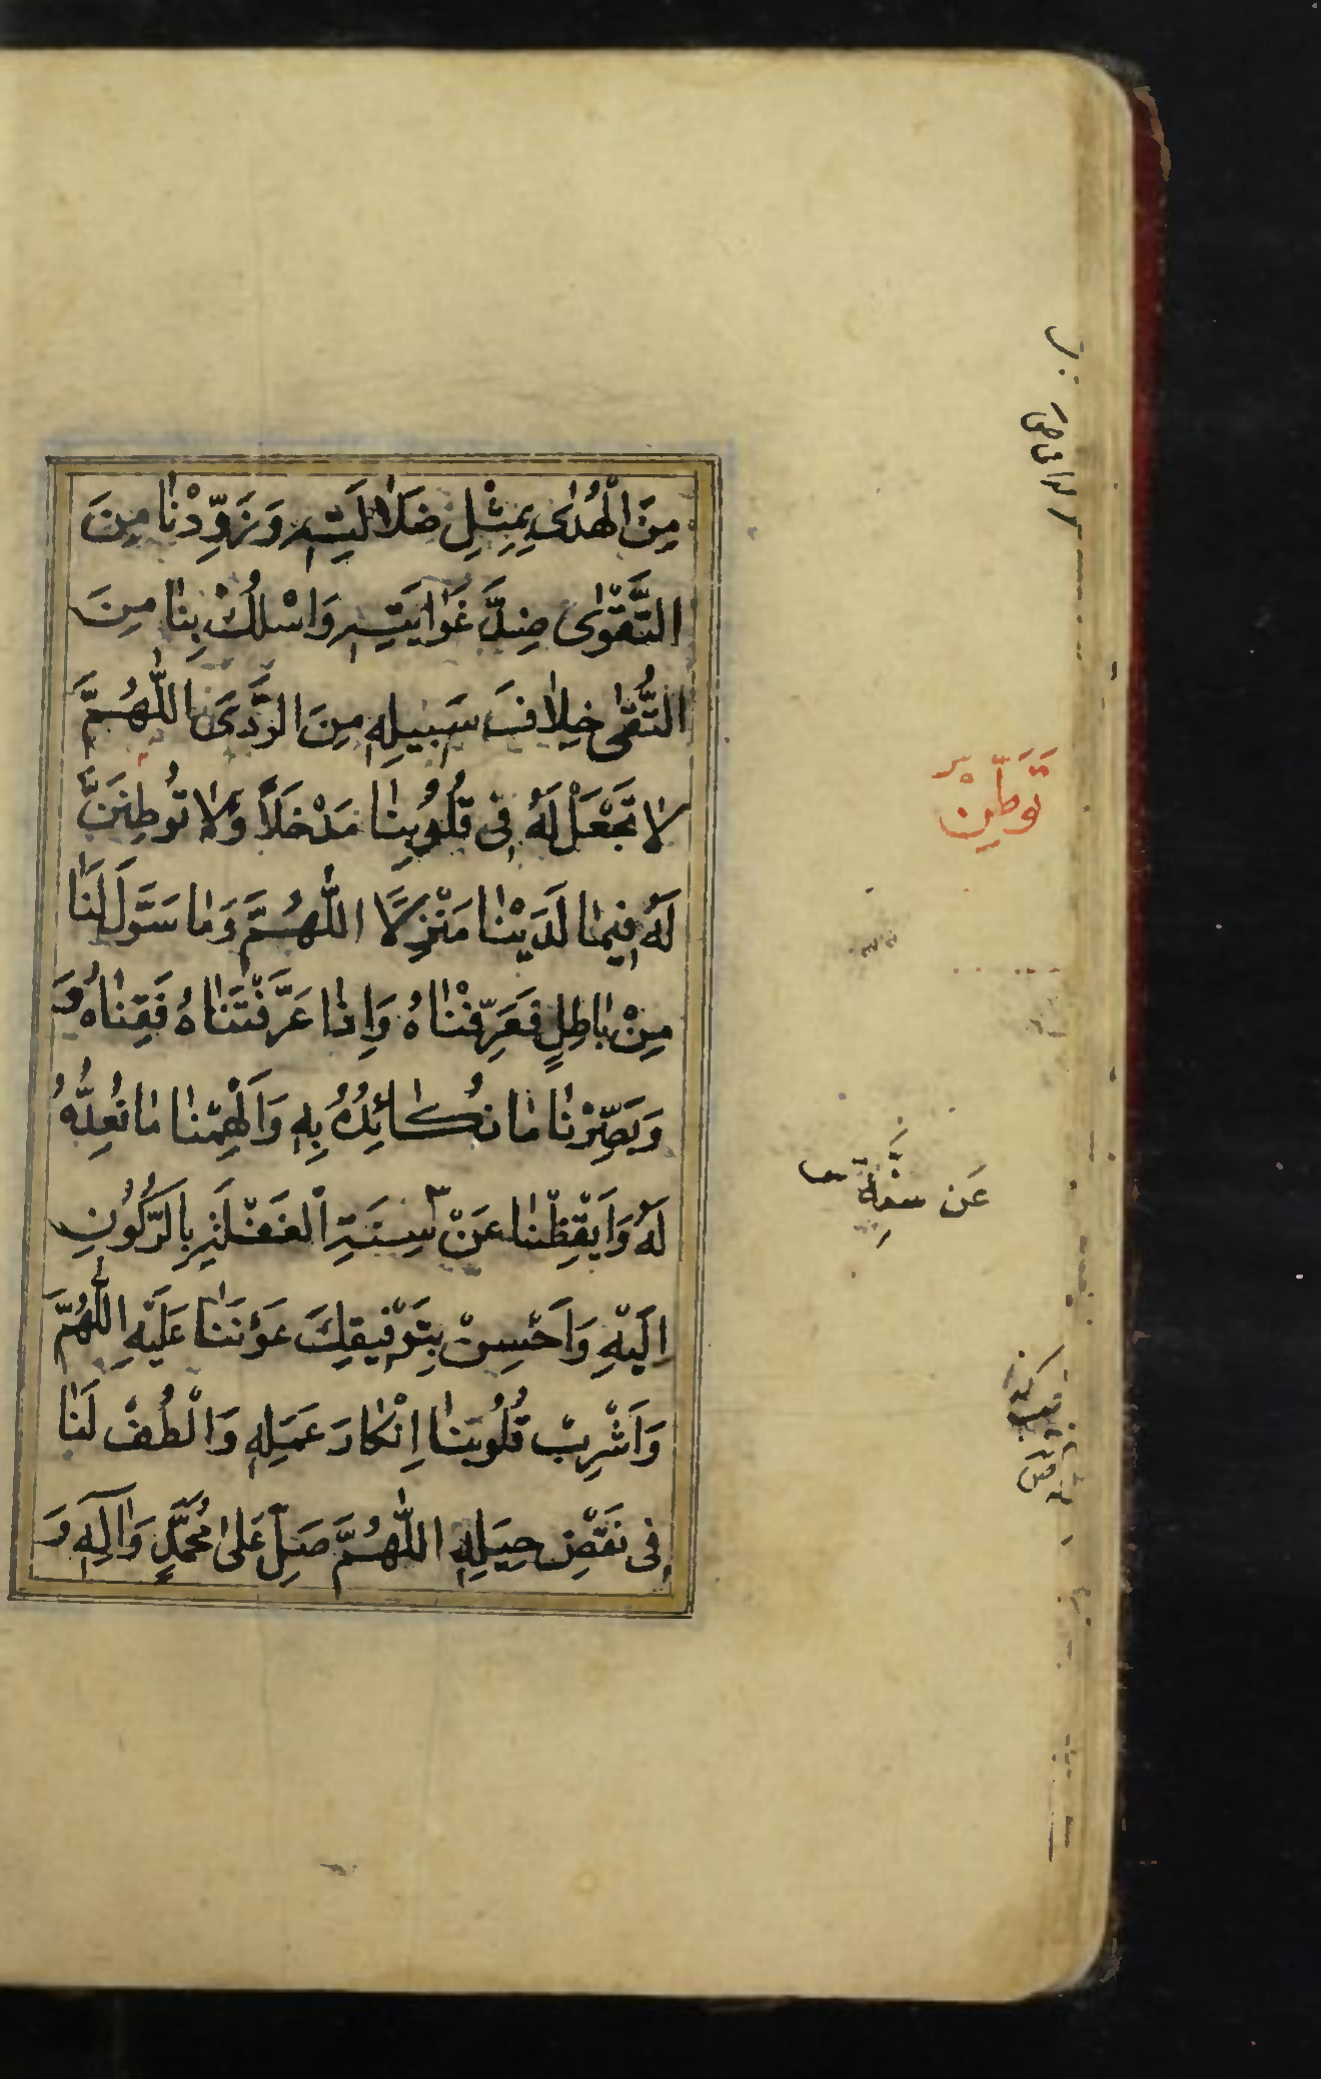 مِنَ الْهُدٰى بِمِثْلِ ضَلَالَتِهِ وَزَوِّدْنٰا مِنَ
التَّقْوٰى ضِدَّ غَوٰايَتِهِ وَاسْلُكْ بِنٰا مِنَ
التُّقٰى خِلٰافَ سَبِيلِهِ مِنَ الرَّدَىٰ اَللّٰهُمَّ
لٰا تَجْعَلْ لَهُ فِى قُلُوبِنٰا مَدْخَلًا وَلٰا تُوطِنَنَّ
لَهُ فِيمٰا لَدَيْنٰا مَنْزِلًا اَللّٰهُمَّ وَمٰا سَوَّلَ لَنٰا
مِنْ بٰاطِلٍ فَعَرِّفْنٰاهُ وَاِذٰا عَرَّفْتَنٰاهُ فَقِنٰاهُ وَ
وَبَصِّرْنٰا مٰا نُكٰائِدُهُ بِهِ وَاَلْهِمْنٰا مٰا نُعِدُّهُ
لَهُ وَاَيْقِظْنٰا عَنْ سِنَةِ الْغَفْلَةِ بِالرُّكُونِ
اِلَيْهِ وَاَحْسِنْ بِتَوْفِيقِكَ عَوْنَنٰا عَلَيْهِ اَللّٰهُمَّ
وَاَشْرِبْ قُلُوبَنٰا اِنْكٰارَ عَمَلِهِ وَالْطُفْ لَنٰا
فِى نَقْضِ حِيَلِهِ اَللّٰهُمَّ صَلِّ عَلىٰ مُحَمَّدٍ وَآلِهِ وَ
تَوَطِّنْ
عَن